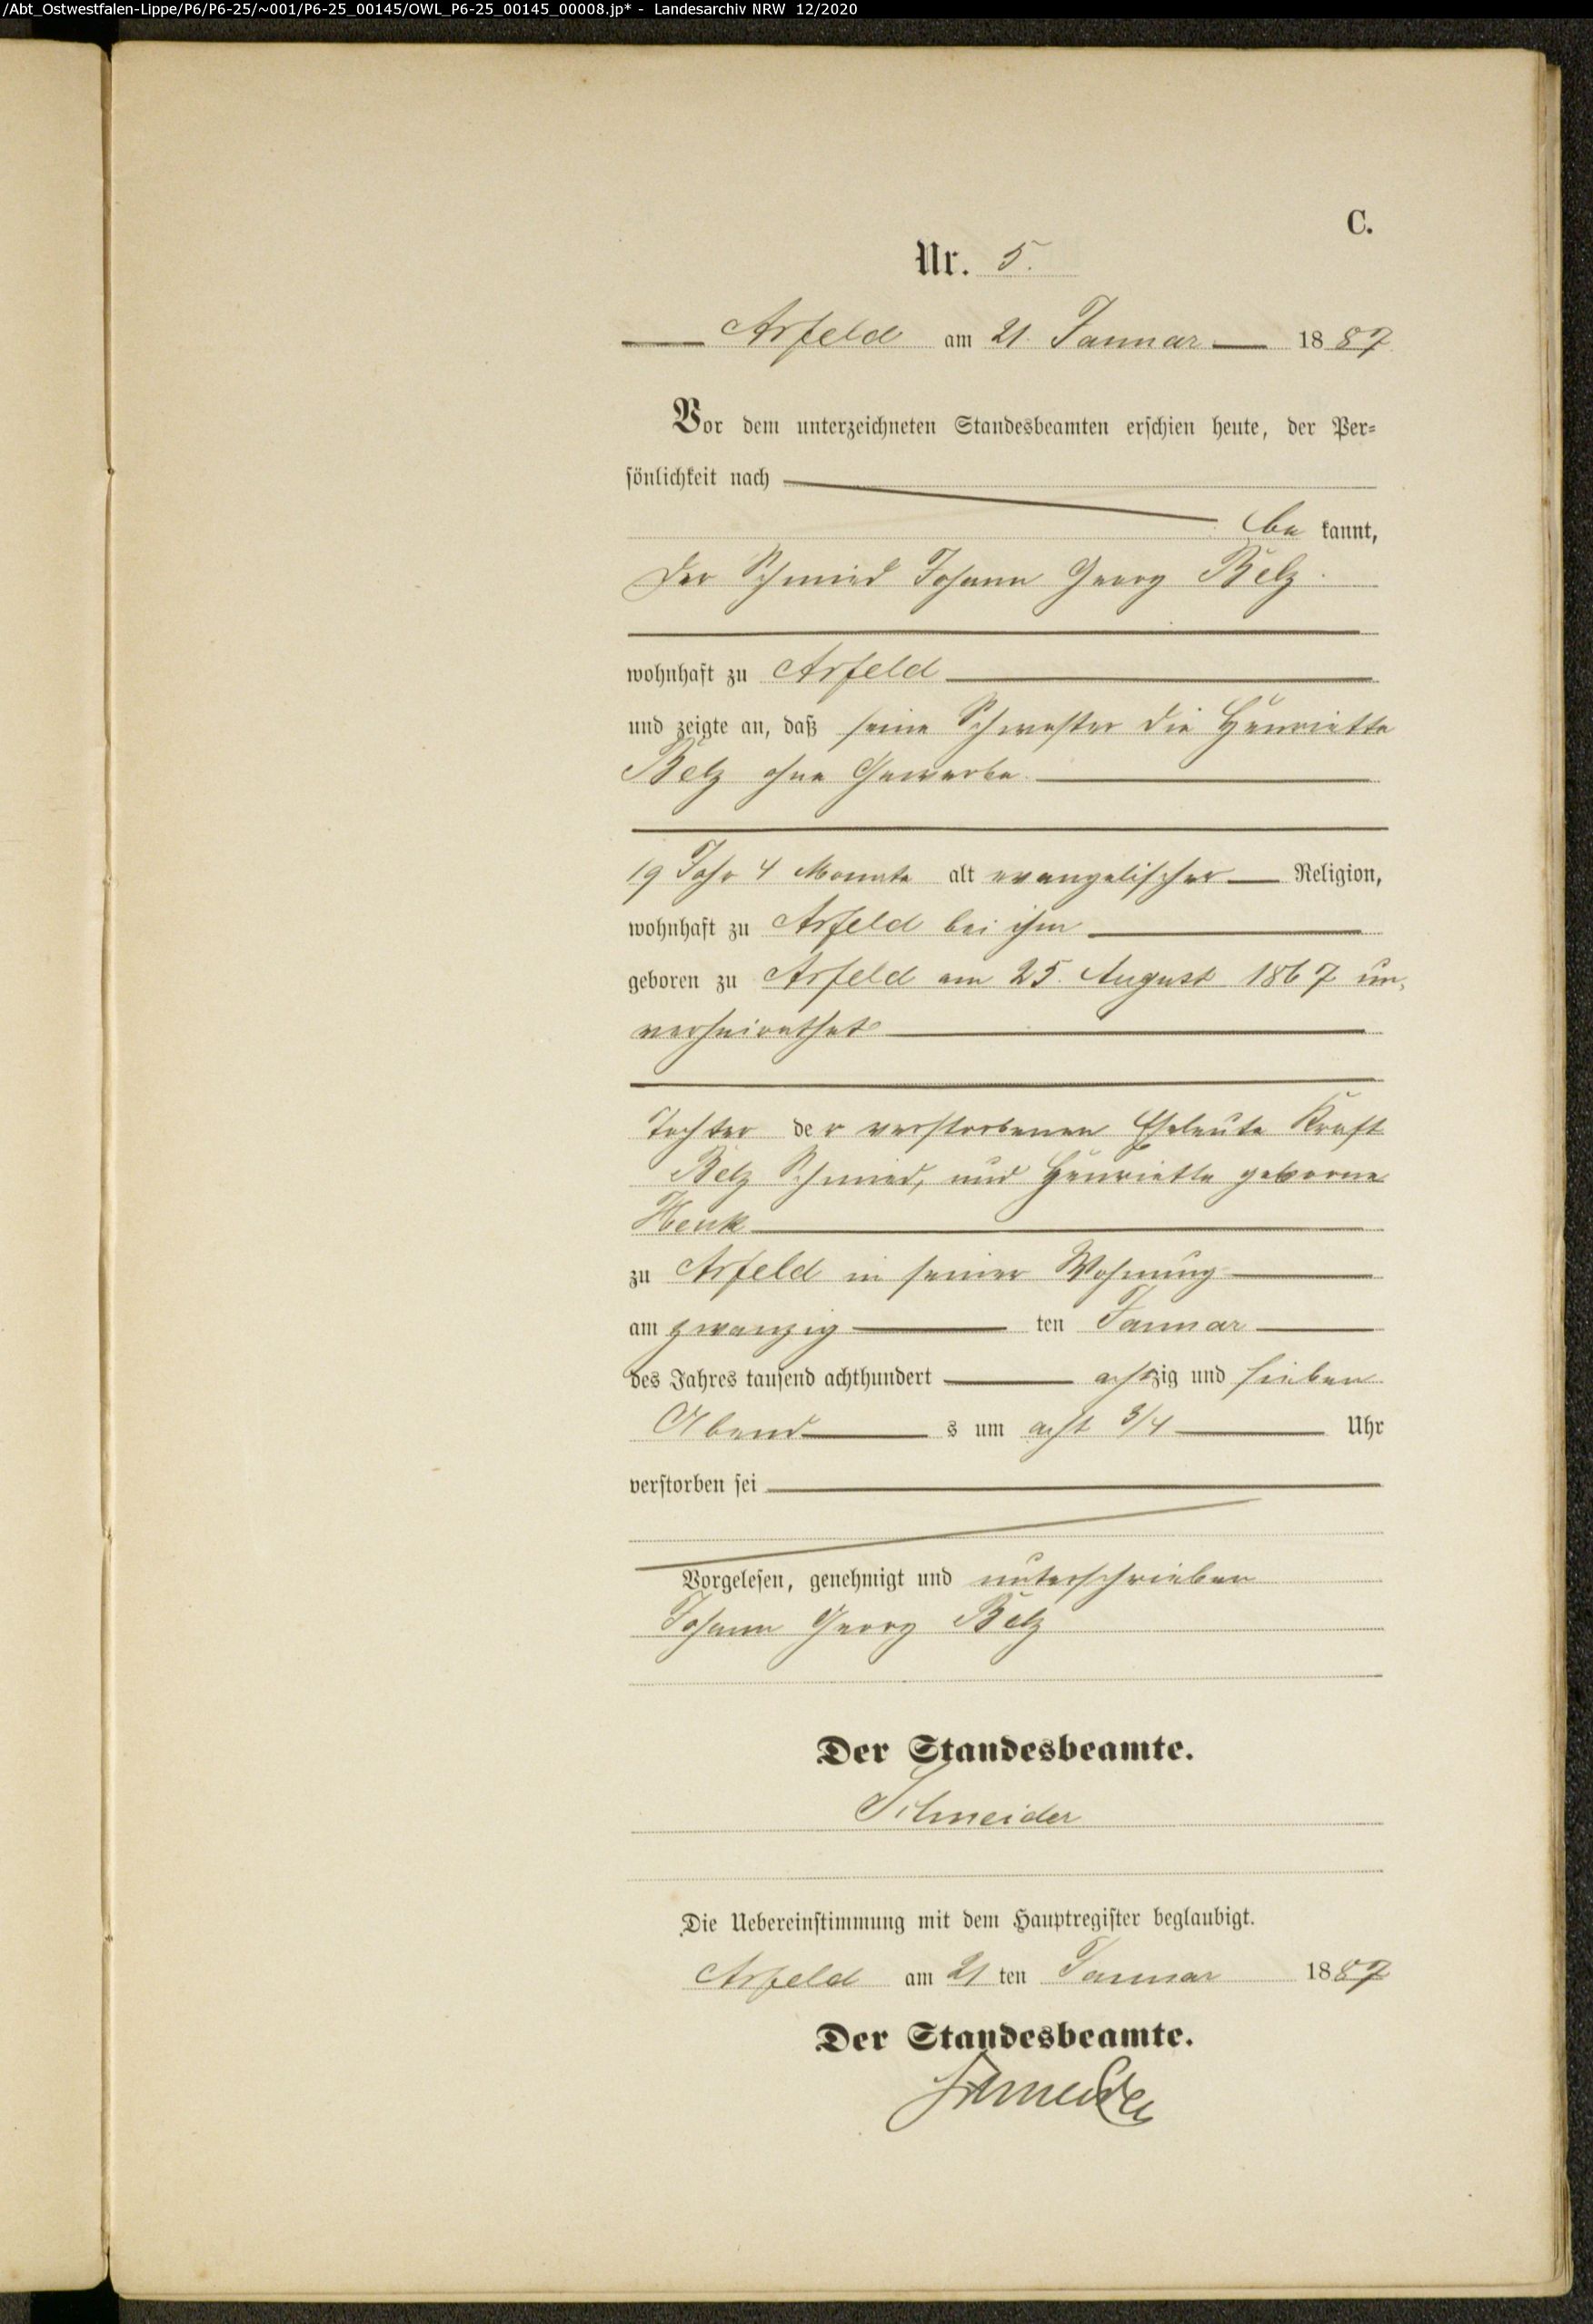 /Abt_Ostwestfalen-Lippe/P6/P6-25/~001/P6-25_00145/OWL_P6-25_00145_00008.jp* - Landesarchiv NRW 12/2020
C.
Nr. 5.
Arfeld am 21. Januar 1887
Vor dem unterzeichneten Standesbeamten erschien heute, der Per-
sönlichkeit nach
be kannt,
der Schmied Johann Georg Belz.
wohnhaft zu Arfeld
und zeigte an, daß seine Schwester die Henriette
Belz ohne Gewerbe
19 Jahr 4 Monate alt evangelischer Religion,
wohnhaft zu Arfeld bei ihm
geboren zu Arfeld am 25. August 1867 un-
verheirathet
Tochter der verstorbenen Eheleute Kraft
Belz Schmied, und Henriette geborne
Henk
zu Arfeld in seiner Wohnung
am zwanzig ten Januar
des Jahres tausend achthundert achtzig und sieben
Abend s um acht 3/4 Uhr
verstorben sei
Vorgelesen, genehmigt und unterschrieben
Johann Georg Belz
Der Standesbeamte.
Schneider
Die Uebereinstimmung mit dem Hauptregister beglaubigt.
Arfeld am 21 ten Januar 1887
Der Standesbeamte.
Schneider